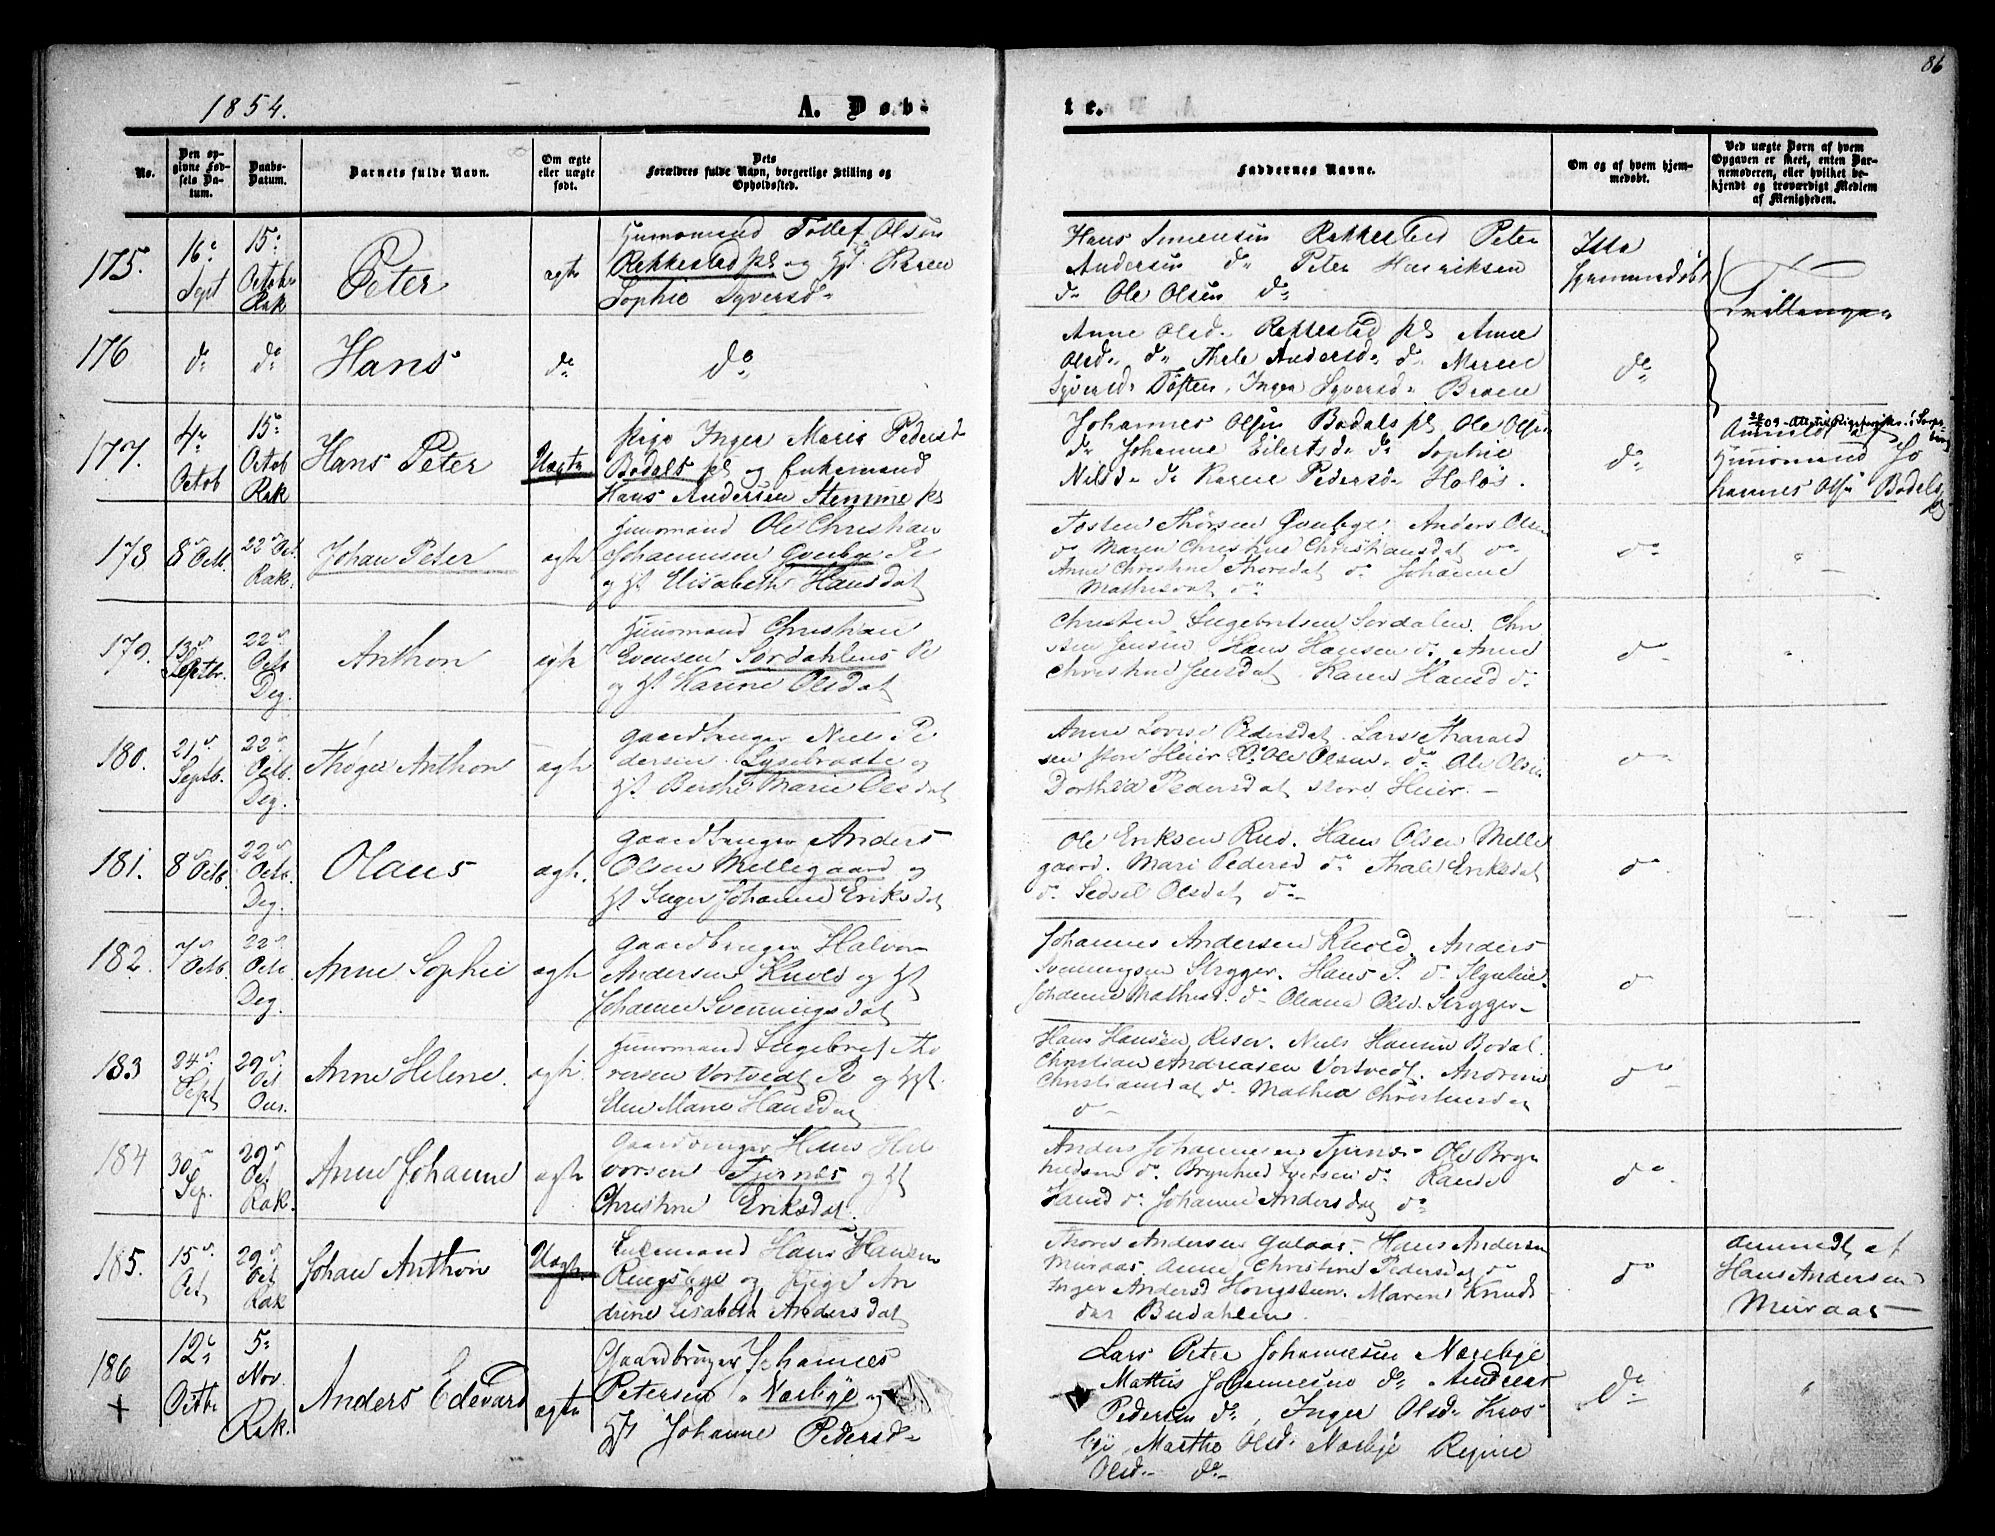 86
1854.
A. Døb-
te.
No.
Den op-
givne Fød-
sels Da-
tum.
Daabs-
Datum.
Barnets fulde Navn.
Om ægte
eller uægte
født.
Dets
Forældres fulde Navn, borgerlige Stilling og
Opholdssted.
Faddernes Navne.
Om og af hvem hjem-
medøbt.
Ved uægte Born af hvem
Opgaven er skeet, enten Bar-
nemoderen, eller hvilket be-
kjendt og troværdigt Medlem
af Menigheden.
175.
16
Sept
15
Octobr
Rak
Peter
ægte
Huusmand Tollef Olsen
Rakkestad pl og Hst. Karen
Sophie Syversd
Hans Rakkestad Peter
Andersen do Peter Henriksen
do Ole Olsen do
Hjemmedøbt
Tvillinger
176
do
do
Hans
do
do
Anne Olsd. Rakkestad pl Anne
Olsd do Thale Andersd do Maren
Syversd Toften, Inger Syversd Braene
do
177.
4
Octob
15
Octob
Rak
Hans Peter
Uægte
Pige Inger Marie Pedersd
Bodals pl og Enkemand
Hans Andersen Stemme pl
Johannes Olsen Bodals pl Ole Olsen
do Johanne Eilertsd do Sophie
Nilsd do Karen Pedersd Holøs.
do
Anmeldt af
Huusmand Jo
hannes Olsen Bodals
pl
178
8 Octb.
22 Oct.
Rak.
Johan Peter
ægte
Huusmand Ole Christian
Johannesen Qvenbye Pl
og Hst Elisabeth Hansdat
Tosten Thorsen Qvenbye, Anders Olsen
do Maren Christine Christiansdat do
Anne Christine Thorsdat do Johanne
Mathisdat do
do
179.
13
Septbr.
22
Octb
Deg.
Anthon
ægte
Huusmand Christian
Evensen Sørdahlens Pl
og Hst Karine Olsdat
Christen Ingebritsen Sørdalen. Chri
sten Jensen Hans Hansen do Anne
Christine Jensdat. Karen Hansd do
do
180.
21
Septb.
22
Octb.
Deg.
Thøger Anthon
ægte
Gaardbruger Niels Pe
dersen Lysebraate og
Hst Berthe Marie Olsdat
Anne Lovise Pedersdat. Lars Harald
sen store Heier Ole Olsen do Ole Olsen
Dorthea Pedersdat store Heier.
do
181.
8 Octb.
22
Octb.
Deg.
Olaus
ægte.
Gaardbruger Anders
Olsen Mellegaard og
Hst Inger Johanne Eriksdat
Ole Eriksen Rud. Hans Olsen Melle
gaard. Mari Pedersd do Thale Eriksdat
do Sedsel Olsdat do
do
182.
7
Octb.
22
Octb
Deg.
Anne Sophie
ægte
Gaardbruger Halvor
Andersen Knold og Hst
Johanne Svenningsdat
Johannes Andersen Knold. Anders
Svenningsen Strygger. Hans P. do
Johanne Mathisd. do Oleana Olsd. Strygger
do
183
24
Sept
29
Oct
Ous.
Anne Helene.
ægte.
Huusmand Ingebret Tho
versen Vortvedt Pl og Hst.
Elen Marie Hansdat
Hans Hansen Reser. Niels Hansen Bodal.
Christian Andreasen Vortvedt. Andrine
Christiansdat do Mathea Christensdat
do
do
184
30
Sep.
29
Oct
Rak.
Anne Johanne
ægte
Gaardbruger Hans Hal
vorsen Tjernæs og Hst
Christine Eriksdat.
Anders Johannesen Tjernæs Ole Bryn
hildsen do Brynhild Iversen do Rande
Hansd do Johanne Andersdat do
do
185.
15
Oct,
29
Oct
Rak
Johan Anthon
Uægte
Enkemand Hans Hansen
Ringsbye og Pige An
drine Lisabeth Andersdat
Thores Andersen Galaas. Hans Andersen
Muraas. Anne Christine Pedersdat do
Inger Andersd Hougstun. Maren Knuds
dat Budahlen
do
anmeldt af
Hans Andersen
Muraas
186
+
12
Octbr
5
Nov.
Rak.
Anders Edevard
ægte
Gaardbruger Johannes
Petersen Narbye og
Hst Johanne Pedersd
Lars Peter Johannesen Narebye
Mattis Johannesen do Andreas
Pedersen do, Inger Olsd Kros
bye, Marthe Olsd. Narbye Regine
Olsd do
do